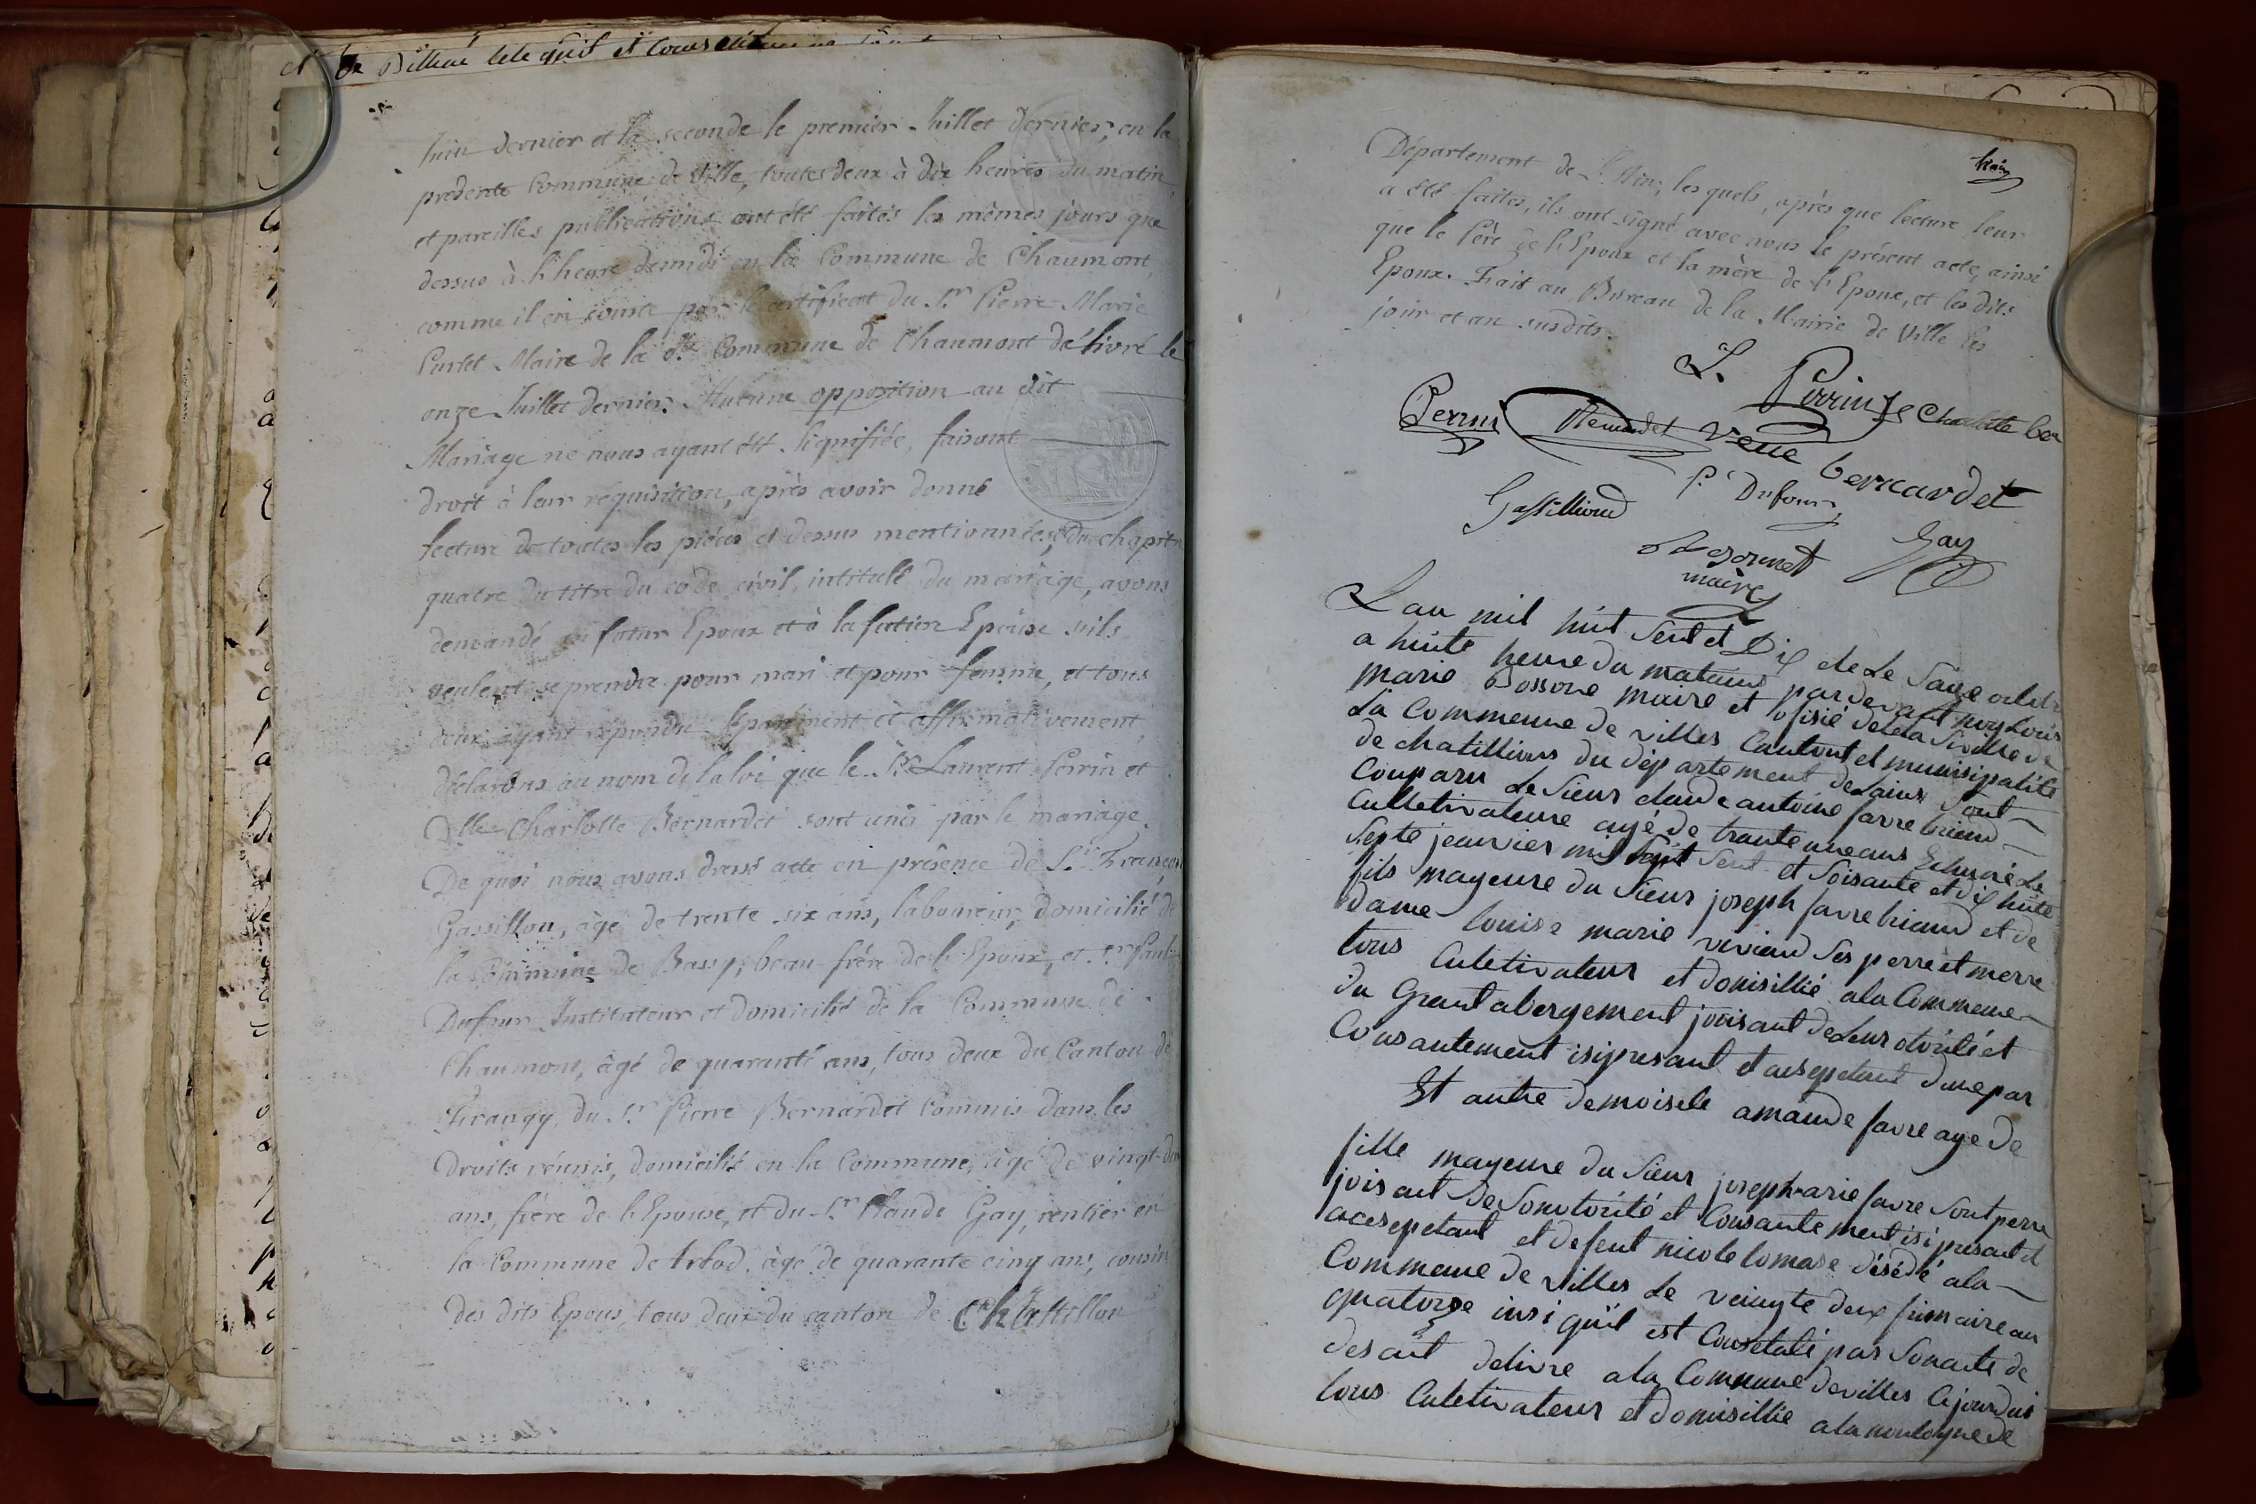 et de Billiat tele quil et Cons
Juin dernier et la seconde le premier Juillet dernier, en la
présente Commune de Ville, toutes deux à dix heures du matin,
et pareilles publications ont été faites les mêmes jours que
dessus à l'heure de midi en la Commune de Chaumont,
comme il en conste par le certificat du Sr Pierre Marie
Curtet Maire de la dte Commune de Chaumont délivré le
onze Juillet dernier. Aucune opposition au dit
Mariage ne nous ayant été signifiée, faisant
droit à leur réquisition, après avoir donné
lecture de toutes les pièces ci dessus mentionnées, & du chapitre
quatre du titre du code civil, intitulé du mariage, avons
demandé au futur Epoux et à la future Epouse s'ils
veulent se prendre pour mari et pour femme, et tous
deux ayant répondu séparément et affirmativement,
déclarons au nom de la loi que le Sr Laurent Perrin et
Dlle Charlotte Bernardet sont unis par le mariage.
De quoi nous avons dressé acte en présence de Sr François
Gassillou, âgé de trente six ans, laboureur, domicilié de
la Commune de Bassy, beau frère de l'Epoux, et Sr Paul
Dufour Instituteur et domicilié de la Commune de
Chaumont, âgé de quarante ans, tous deux du Canton de
Frangy, du Sr Pierre Bernardet Commis dans les
Droits réunis, domicilié en la Commune, âgé de vingt-deux
ans, frère de l'Epouse, et du Sr Claude Gay, rentier en
la Commune de Arlod, âgé de quarante cinq ans, cousin
des dits Epoux, tous deux du canton de Châtillon
Département de l'Ain, les quels, après que lecture leur
a été faites, ils ont signé avec nous le présent acte, ainsi
que le Père de l'Epoux et la mère de l'Epouse, et les dits
Epoux. Fait au Bureau de la Mairie de Ville les
jour et an susdits.
L. Perrin Charlotte ber
Perrin Bernardet veuve bernardet
Gassilloud P. Dufour
Bossonet Gay
maire
Lan mil huit Sent et Dix et Le Saize
a huite heure du matains par devant moy Louis
marie Bossone maire et ofisié deleta Siville de
La Commeune de villes Cantont et munisipalité
de chatillions du département delains Sont
Conparu Le Sieur claude antoine favre briand
Culletivateure agé de trante une ans Et
Septe jeanvier mil Sept Sent et Soisante et dix huite
fils mayeure du Sieur joseph favre briand et de
dame louise marie viviand Ses perre et merre
tous Culetivateur et domisillié a la Commeune
du Grant abergement joisant de Leur otorité et
Consantement isi presant et acseptant dune par
Et autre demoisele amande favre age de
fille mayeure du Sieur joseph marie favre Sont perre
joisant de Sonotorité et Consantement isi presant et
acceseptant et defeut nicole lomase désédé a la
Commeune de villes Le veingte deux frimaire an
quatorze insi quil est Consetaté par Sonacte de
desait delivre a la Commune de villes Cejourdui
tous Culetivateur et domisillie a la montagne de